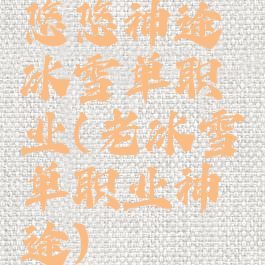 悠悠神途
冰雪单职
业(老冰雪
单职业神
途)